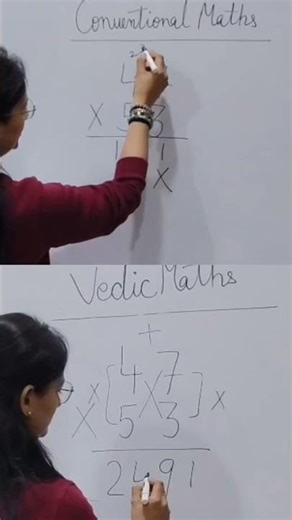 Conventional Maths
2
4
X 53
1 1
X
Vedic Maths
+
X [ 4 X 7 ] X
X 5 3
2491